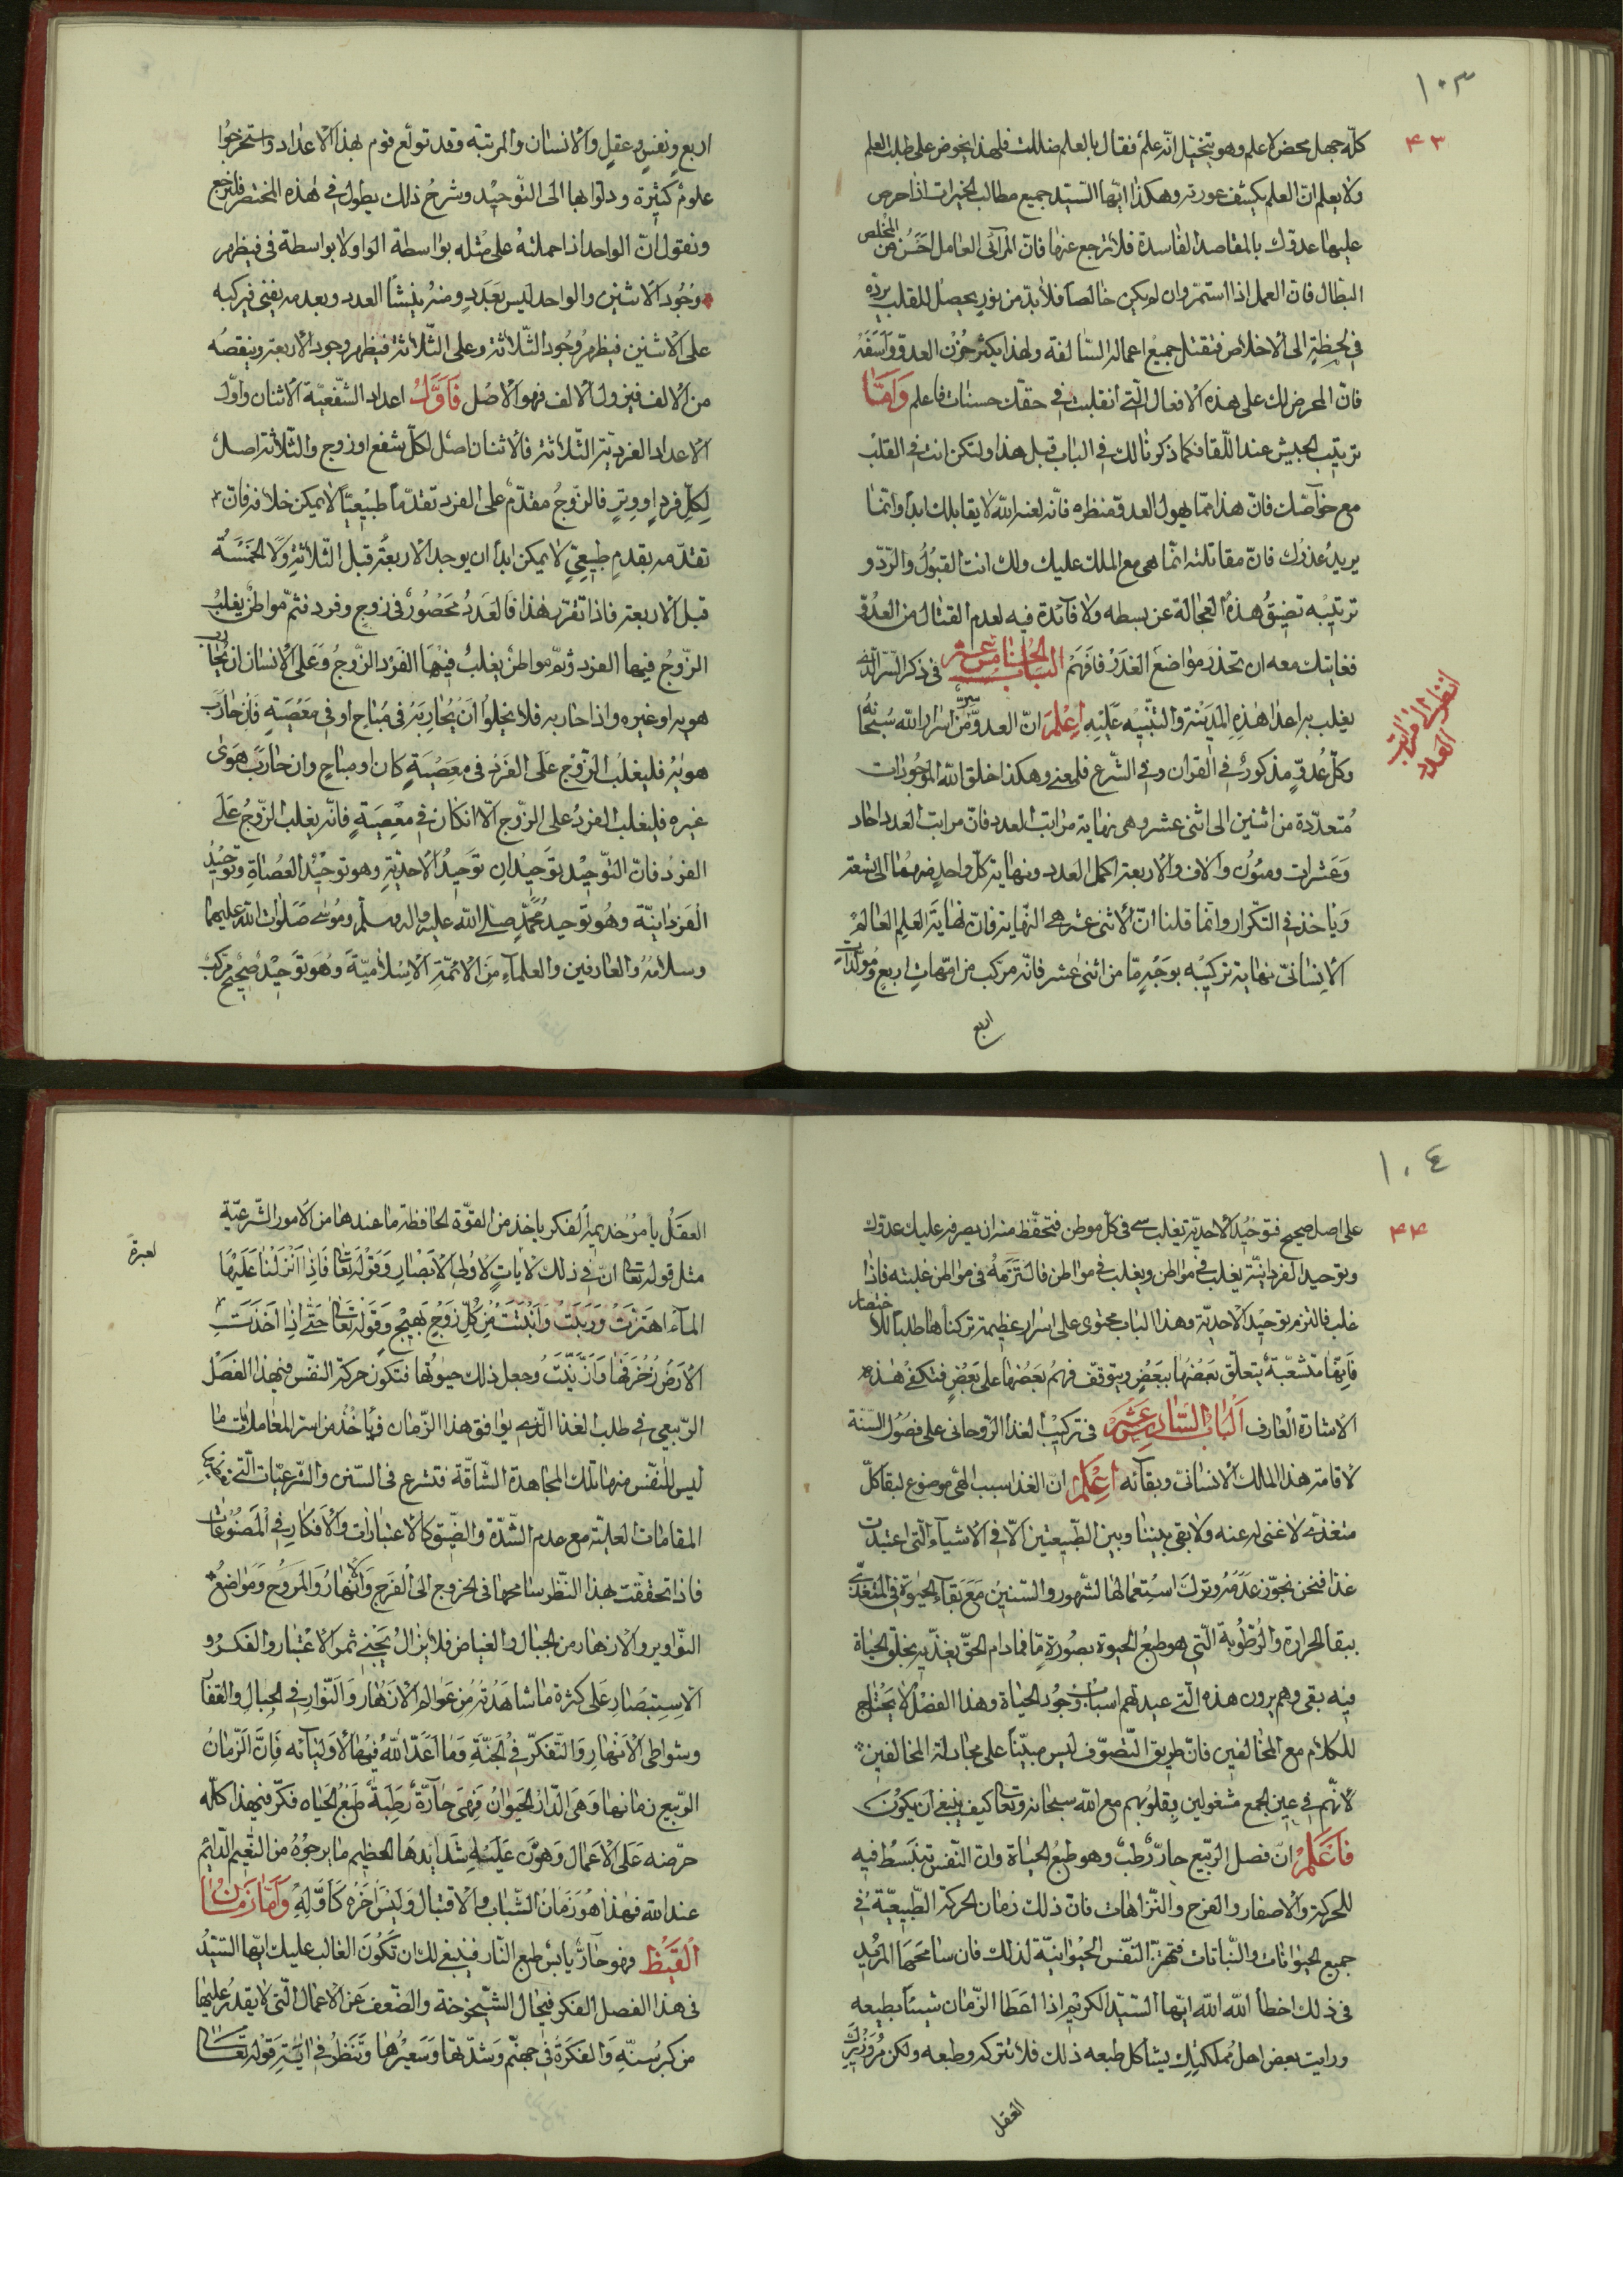 ١٠٣
٤٣
كلّه جهل محض لا علم وهو يتخيّل انّه علم فقال بالعلم ضللت فلهذا يحرض على طلب العلم
ولا يعلم انّ العلم يكشف عورته وهكذا ايّها السّيّد جميع مطالب الخيرات اذا حرص
عليها عدوّك بالمقاصد الفاسدة فلا ترجع عنها فانّ المرآئى العامل احسن من المخلص
البطّال فانّ العمل اذا استمرّ وان لم يكن خالصاً فلا بدّ من نور يحصل للقلب يردّه
فى لحظة الى الاخلاص فتقبل جميع اعماله السّالفة ولهذا يكثر حزن العدوّ واسفه
فانّ المحرض لك على هذه الافعال الّتى انقلبت فى حقّك حسنات فاعلم وَامّا
ترتيب الجيش عند اللّقا فكما ذكرنا لك فى الباب قبل هذا ولتكن انت فى القلب
مع خواصّك فانّ هذا ممّا يهول العدوّ منظره فانّه لعنه الله لا يقابلك ابداً وانّما
يريد غدرك فانّ مقاتلته انّما هى مع الملك عليك ولك انت القبول والرّدّ و
ترتيبه تضيق هذه العجالة عن بسطه ولا فآئدة فيه لعدم القتال من العدوّ
فغايتك معه ان تحذر مواضع الغدر فافهم الباب الخامس عشر فى ذكر السّرّ الّذى
يغلب به اعدا هذه المدينة والتّنبيه عليه اِعْلم انّ العدوّ سرّ من اسرار الله سبحانه
وكلّ عدوّ مذكور فى القران وفى الشّرع فلمعنى وهكذا خلق الله الموجودات
متعدّدة من اثنين الى اثنى عشر وهى نهاية مراتب العدد فانّ مراتب العدد احاد
وعشرات ومئون والاف والاربعة اكمل العدد ونهاية كلّ واحد منهما الى تسعة
وياخذ فى التكرار وانّما قلنا انّ الاثنى عشر هى النّهاية فانّ نهاية العلم العالم
الانسانىّ نهاية تركيبه بوجه مّا من اثنى عشر فانّه مركب من امّهات اربع ومولّدات
اربع
انظر الى مراتب العدد
اربع ونفس وعقل والانسان والمرتبة وقد تولّع قوم بهذا الاعداد واستخرجوا
علوم كثيرة ودلّوا بها الى التّوحيد وشرح ذلك يطول فى هذه المختصر فلنرجع
ونقول انّ الواحد اذا حملته على مثله بواسطة الواو لا بواسطة فى فيظهر
وجود الاثنين والواحد ليس بعدد ومنه ينشأ العدد وبعدمه يفنى فيركبه
على الاثنين فيظهر وجود الثّلاثة وعلى الثّلاثة فيظهر وجود الاربعة وينقصه
من الالف فيزول الالف فهو الاصل فَاَوّلُ اعداد الشّفعيّة الاثنان واوّل
الاعداد الفرديّة الثّلاثة فالاثنان اصل لكلّ شفع او زوج والثّلاثة اصل
لكلّ فرد او وتر فالزّوج مقدّم على الفرد تقدّماً طبيعيّاً لا يمكن خلافه فانّ
تقدّمه بقدم طبيعىّ لا يمكن ابداً ان يوجد الاربعة قبل الثّلاثة ولا الخمسة
قبل الاربعة فاذا تقرّر هذا فالعدد محصور فى زوج وفرد فثمّ مواطن يغلب
الزّوج فيها الفرد وثمّ مواطن يغلب فيها الفرد الزّوج وعلى الانسان ان يحارب
هويه او غيره واذا حاربه فلا يخلوا ان يحاربه فى مباح او فى معصية فان حارب
هويه فليغلب الزّوج على الفرد فى معصية كان او مباح وان حارب هوى
غيره فليغلب الفرد على الزّوج الّا ان كان فى معصية فانّه يغلب الزّوج على
الفرد فانّ التّوحيد توحيدان توحيد الاحديّة وهو توحيد العصاة وتوحيد
الفردانيّة وهو توحيد محمّد صلى الله عليه واله وسلّم وموسى صلوات الله عليهما
وسلامه والعارفين والعلمآء من الائمّة الاسلاميّة وهو توحيد صحيح مركب
١٠٤
٤٤
على اصل صحيح فتوحيد الاحديّة يغلب سى فى كلّ موطن فتحفّظ منه ان يصرفه عليك عدوّك
وتوحيد الفردانيّة يغلب فى مواطن ويغلب فى مواطن فالتزمه فى مواطن غلبته فاذا
غلب فالتزم توحيد الاحديّة وهذا الباب محتوى على اسرار عظيمة تركناها طلباً للاختصار
فانّها متشعّبة يتعلّق بعضها ببعض ويتوقف فهم بعضها على بعض فتكفى هذه
الاشارة العارف اَلباب السّادس عشر فى تركيب الغذا الرّوحانى على فصول السّنة
لاقامة هذا المالك الانسانىّ وبقآئه اِعْلَمْ انّ الغذا سبب الهى موضوع لبقا كلّ
متغذّى لا غنى له عنه ولا بقى بيننا وبين الطّبيعيّين الّا فى الاشيآء الّتى اعتيدت
غذا فنحن نجوّز عدمه وترك استعمالها الشّهور والسّنين مع بقآء الحيوة فى المتغذّى
ببقا الحرارة والرّطوبة الّتى هو طبع الحيوة بصورة مّا فما دام الحقّ يغذّيه بخلق الحياة
فيه بقى وهم يرون هذه الّتى عبدتهم اسباب وجود الحياة وهذا الفصل لا يحتاج
للكلام مع المخالفين فانّ طريق التّصوّف ليس مبيّناً على مجادلة المخالفين
لانّهم فى عين الجمع مشغولين بقلوبهم مع الله سبحانه وتعالى كيف ينبغى ان يكون
فَاعْلَمْ انّ فصل الرّبيع حارّ رطب وهو طبع الحياة وانّ النّفس تنبسط فيه
للحركة والاسفار والفرح والنّزاهات فانّ ذلك زمان الحركة الطّبيعيّة فى
جميع الحيوانات والنّباتات فتهتزّ النّفس الحيوانيّة لذلك فان سامحها المريد
فى ذلك اخطأ الله الله ايّها السّيّد الكريم اذا اعطا الزّمان شيئاً بطبعه
ورايت بعض اهل مملكتك يشاكل طبعه ذلك فلا تتركه وطبعه ولكن مر وزيرك
العقل
العقل يأمر خديمه الفكر ياخذ من القوّة الحافظة ما عندها من الامور الشّرعيّة
مثل قوله تعالى انّ فى ذلك لايات لاولى الابصار وقوله تعالى فاذا انزلنا عليها
لعبرة
المآء اهتزّت وربت وانبتت من كلّ زوج بهيج وقوله تعالى حتّى اذا اخذت
الارض زخرفها وازّيّنت وجعل ذلك حيوتها فتكون حركة النفس فى هذا الفصل
الرّبيعى فى طلب الغذا الّذى يوافق هذا الزّمان فياخذ من اسر المعاملات ما
ليس للنّفس منها تلك المجاهدة الشّاقّة فتشرع فى السّنن والشّرعيّات الّتى
المقامات العليّة مع عدم الشّدّة والضّيق كالاعتبارات والافكار فى المصنوعات
فاذا تحقّقت بهذا النّظر سامحها فى الخروج الى الفرج والانهار والمروج ومواضع
النّواوير والازهار من الجبال والغياض فلا يزال يجنى ثمر الاعتبار والفكر و
الاستبصار على كثرة ما شاهدته من عوالم الازهار والنّوار فى الجبال والقفار
وشواطى الانهار والتّفكّر فى الجنّة وما اعدّ الله فيها لاوليآئه فانّ الزّمان
الرّبيع زمانها وهى الدّار الحيوان فهى حارّة رطبة طبع الحياه فكرّ فى هذا كلّه
حرّضه على الاعمال وهوّن عليه شدآئدها لعظيم ما يرجوه من النّعيم الدّآئم
عند الله فهذا هو زمان الشّباب والاقتبال وليس اخره كاوّله وَامّا زمن
اَلقَيْظ فهو حارّ يابس طبع النّار فينبغى لك ان تكون الغالب عليك ايّها السّيّد
فى هذا الفصل الفكر فى حال الشّيخوخة والضّعف عن الاعمال الّتى لا يقدر عليها
من كبر سنّه والفكرة فى جهنّم وشدّتها وسعيرها وتنظر فى اية قوله تعالى